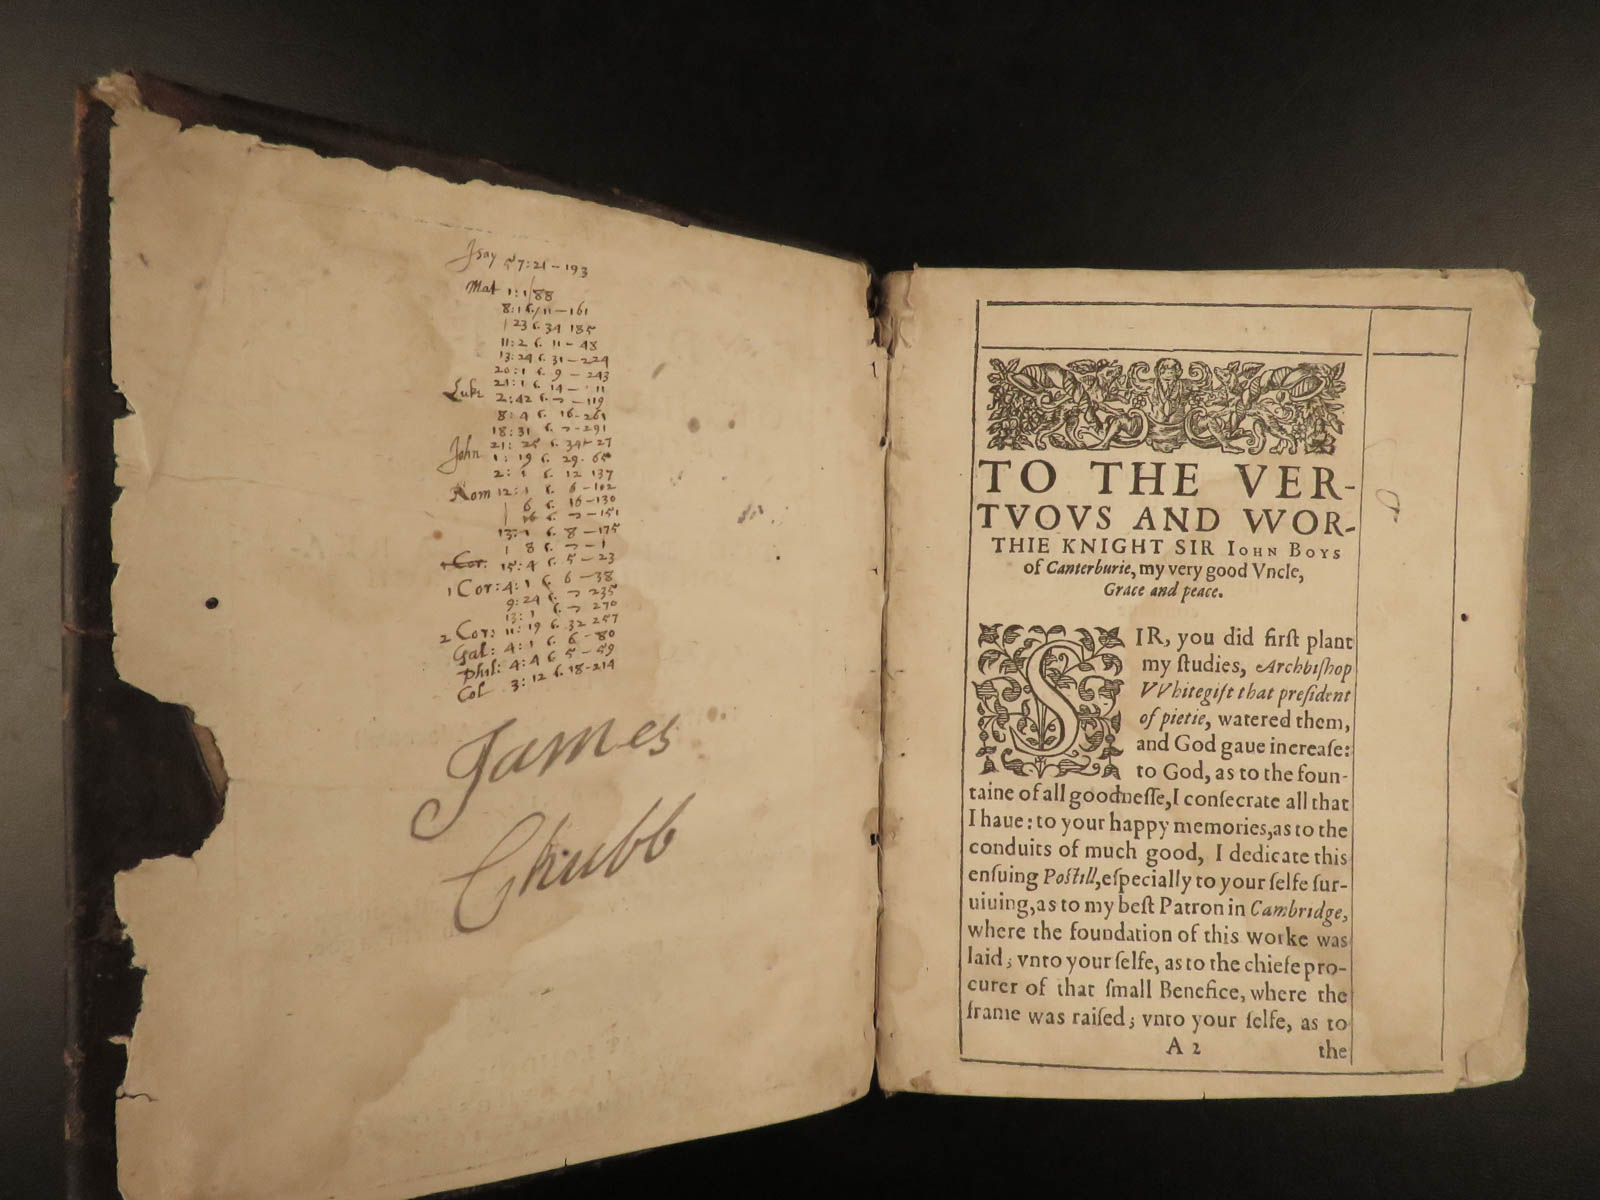 Isay 57:21 – 193
Mat 1:1/88
8:1 6/11 – 161
23 6. 34 185
11:2 6. 11 – 48
13:24 6. 31 – 224
20:1 6. 9 – 243
21:1 6. 14 – 11
Luke 2:42 6. – 119
8:4 6. 16 - 261
18:31 6. – 291
John 21: 25 6. 34 – 27
1: 19 6. 29 - 65
2: 1 6. 12 137
Rom 12:1 6. 6 – 102
6 6. 16 – 130
16 6. – 151
13:1 6. 8 – 175
8 6. – 1
Cor: 15:4 6. 5 – 23
1 Cor: 4:1 6. 6 – 38
9:24 6. 235
13:1 6. 270
2 Cor: 11:19 6. 32 257
Gal: 4:1 6. 6 – 80
Phil: 4:4 6 5 – 59
Col 3:12 6. 18 - 214
James
Chubb
TO THE VER-
TVOVS AND WOR-
THIE KNIGHT SIR IOHN BOYS
of Canterburie, my very good Vncle,
Grace and peace.
SIR, you did firſt plant
my ſtudies, Archbiſhop
VVhitegift that preſident
of pietie, watered them,
and God gaue increaſe:
to God, as to the foun-
taine of all goodneſſe, I conſecrate all that
I haue: to your happy memories, as to the
conduits of much good, I dedicate this
enſuing Poſtill, eſpecially to your ſelfe ſur-
uiuing, as to my beſt Patron in Cambridge,
where the foundation of this worke was
laid; vnto your ſelfe, as to the chiefe pro-
curer of that ſmall Benefice, where the
frame was raiſed; vnto your ſelfe, as to
A 2 the